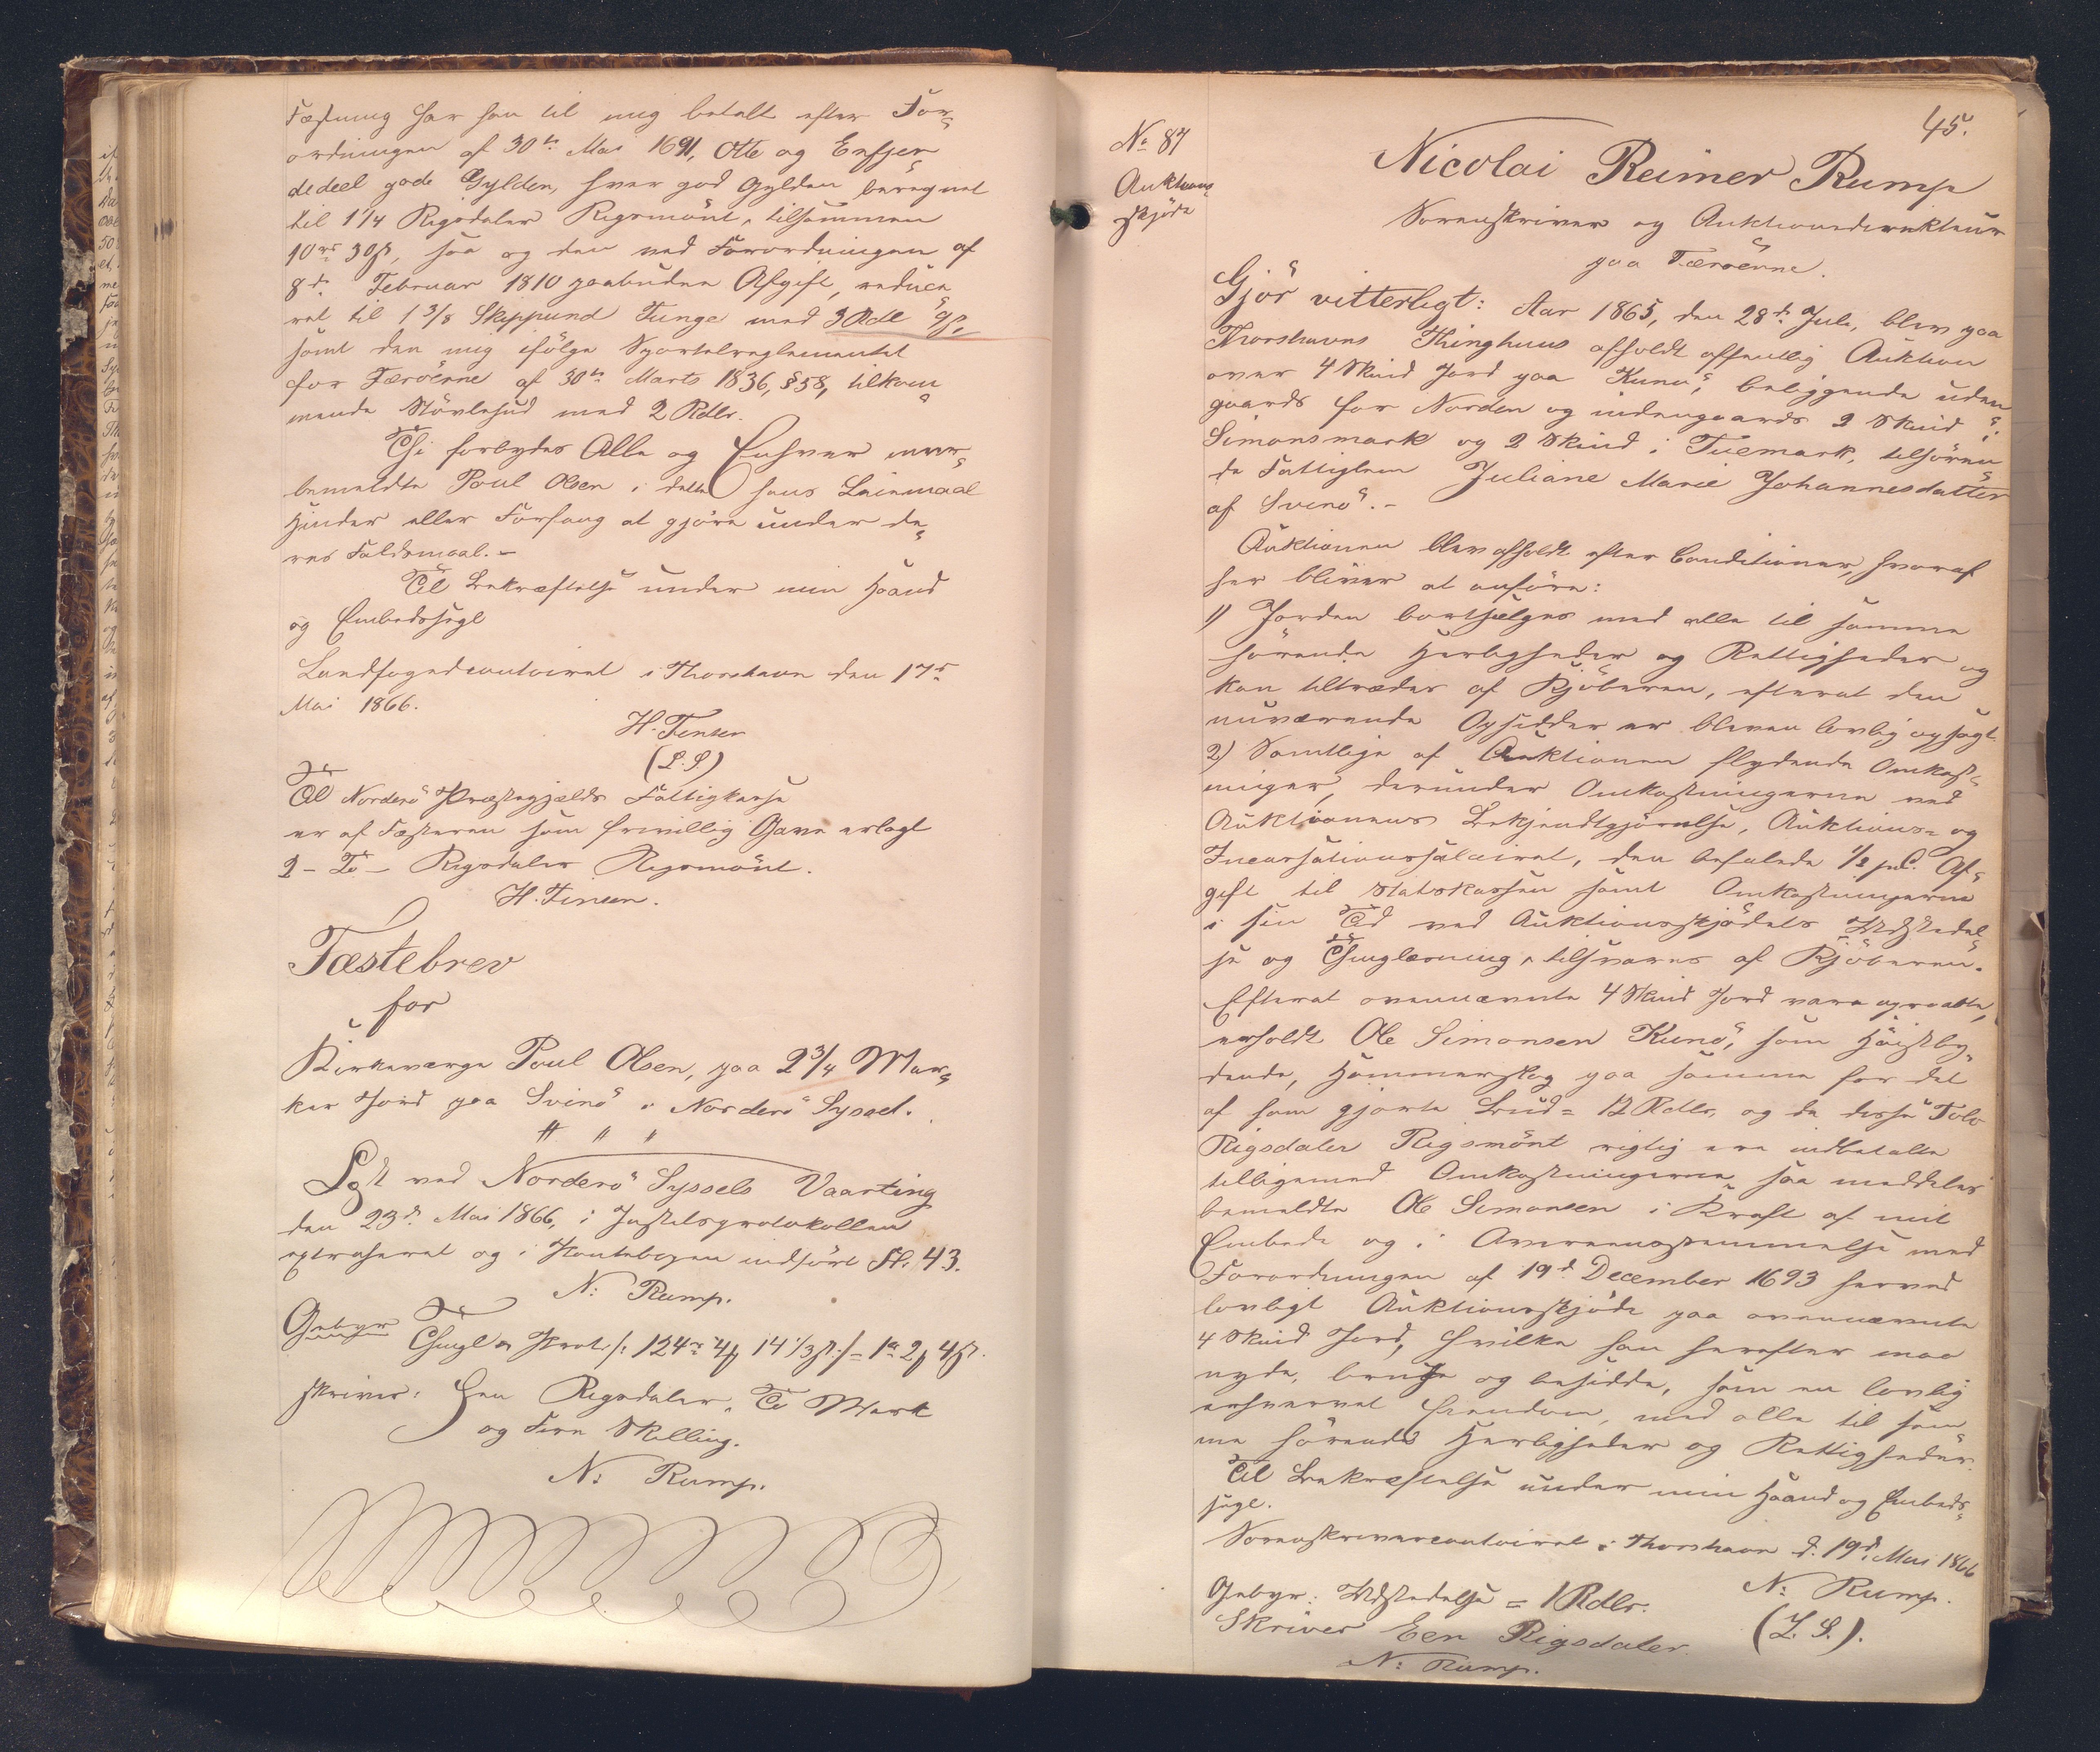 Fæstning har han til mig betalt efter For-
ordningen af 30te Mai 1691, Otte og Enfjer-
dedeel gode Gylden, hver god Gylden beregnet
til 1 1/4 Rigsdaler Rigsmönt, tilsammen
10 30 ß, saa og den ved Forordningen af
8de Februar 1810 paabudne Afgift, reduce-
ret til 1 3/8 Skippund Tunge med 3 Rdl
samt den mig ifölge Sportelreglementet
for Færöerne af 30te Marts 1836, § 58, tilkom-
mende Stövlehud med 2 Rdlr.
Thi forbydes Alle og Enhver over-
bemeldte Poul Olsen i dette hans Leiemaal
Hinder eller Forfang at gjöre under de-
res Faldsmaal. –
Til Bekræftelse under min Haand
og Embedssegl
Landfogedcontoiret i Thorshavn den 17de
Mai 1866.
H. Finsen
(L. S.)
Til Norderö Præstegjælds Fattigkasse
er af Fæsteren som frivillig Gave erlagt
2 – To – Rigsdaler Rigsmönt.
H. Finsen.
Fæstebrev
for
Kirkeværge Poul Olsen, paa 2 3/4 Mar-
ker Jord paa Svinö i Norderö Syssel.
" " "
Læst ved Norderö Syssels Vaarting
den 23de Mai 1866, i Justitsprotokollen
extraheret og i Pantebogen indfört Fol. 43.
N: Rump.
Gebyr
Thingl. og Prot. /: 124 4 14 1/3 ß :/ = 1 2 4 ß.
skriver: Een Rigsdaler, To Mark
og Fire Skilling.
N: Rump.
45.
No 87
Auktions-
skjöde
Nicolai Reimer Rump
Sorenskriver og Auktionsdirekteur
paa Færöerne.
Gjör vitterligt: Aar 1865, den 28de Juli, blev paa
Thorshavns Thinghuus afholdt offentlig Auktion
over 4 Skind Jord paa Kunö, beliggende uden-
gaards for Norden og indengaards 2 Skind i
Simonsmark og 2 Skind i Tuemark, tilhören-
de Fattiglem Juliane Marie Johannesdatter
af Svinö. –
Auktionen blev afholdt efter Conditioner, hvoraf
her bliver at anföre:
1) Jorden bortsælges med alle til samme
hörende Herligheder og Rettigheder og
kan tiltrædes af Kjöberen, efterat den
nuværende Opsidder er bleven lovlig opsagt.
2) Samtlige af Auktionen flydende Omkost-
ninger, derunder Omkostningerne ved
Auktionens Bekjendtgjörelse, Auktions- og
Incassationssalairet, den befalede 1/2 pCt. Af-
gift til Statskassen samt Omkostningerne
i sin Tid ved Auktionsskjödets Udstedel-
se og Thinglæsning, tilsvares af Kjöberen.
Efterat ovennævnte 4 Skind Jord vare opraabte,
erholdt Ole Simonsen Kunö, som Höistby-
dende, Hammerslag paa samme for det
af ham gjorte Bud = 12 Rdlr, og da disse Tolv
Rigsdaler Rigsmönt rigtig ere indbetalte
tilligemed Omkostningerne, saa meddeles
bemeldte Ole Simonsen i Kraft af mit
Embede og i Overeensstemmelse med
Forordningen af 19de December 1693 herved
lovligt Auktionsskjöde paa ovennævnte
4 Skind Jord, hvilke han herefter maa
nyde, bruge og besidde, som en lovlig
erhvervet Eiendom, med alle til sam-
me hörende Herligheder og Rettigheder.
Til Bekræftelse under min Haand og Embeds-
segl.
Sorenskrivercontoiret i Thorshavn d. 19de Mai 1866
N: Rump.
(L. S.).
Gebyr: Udstedelse = 1 Rdlr.
Skriver Een Rigsdaler.
N: Rump.